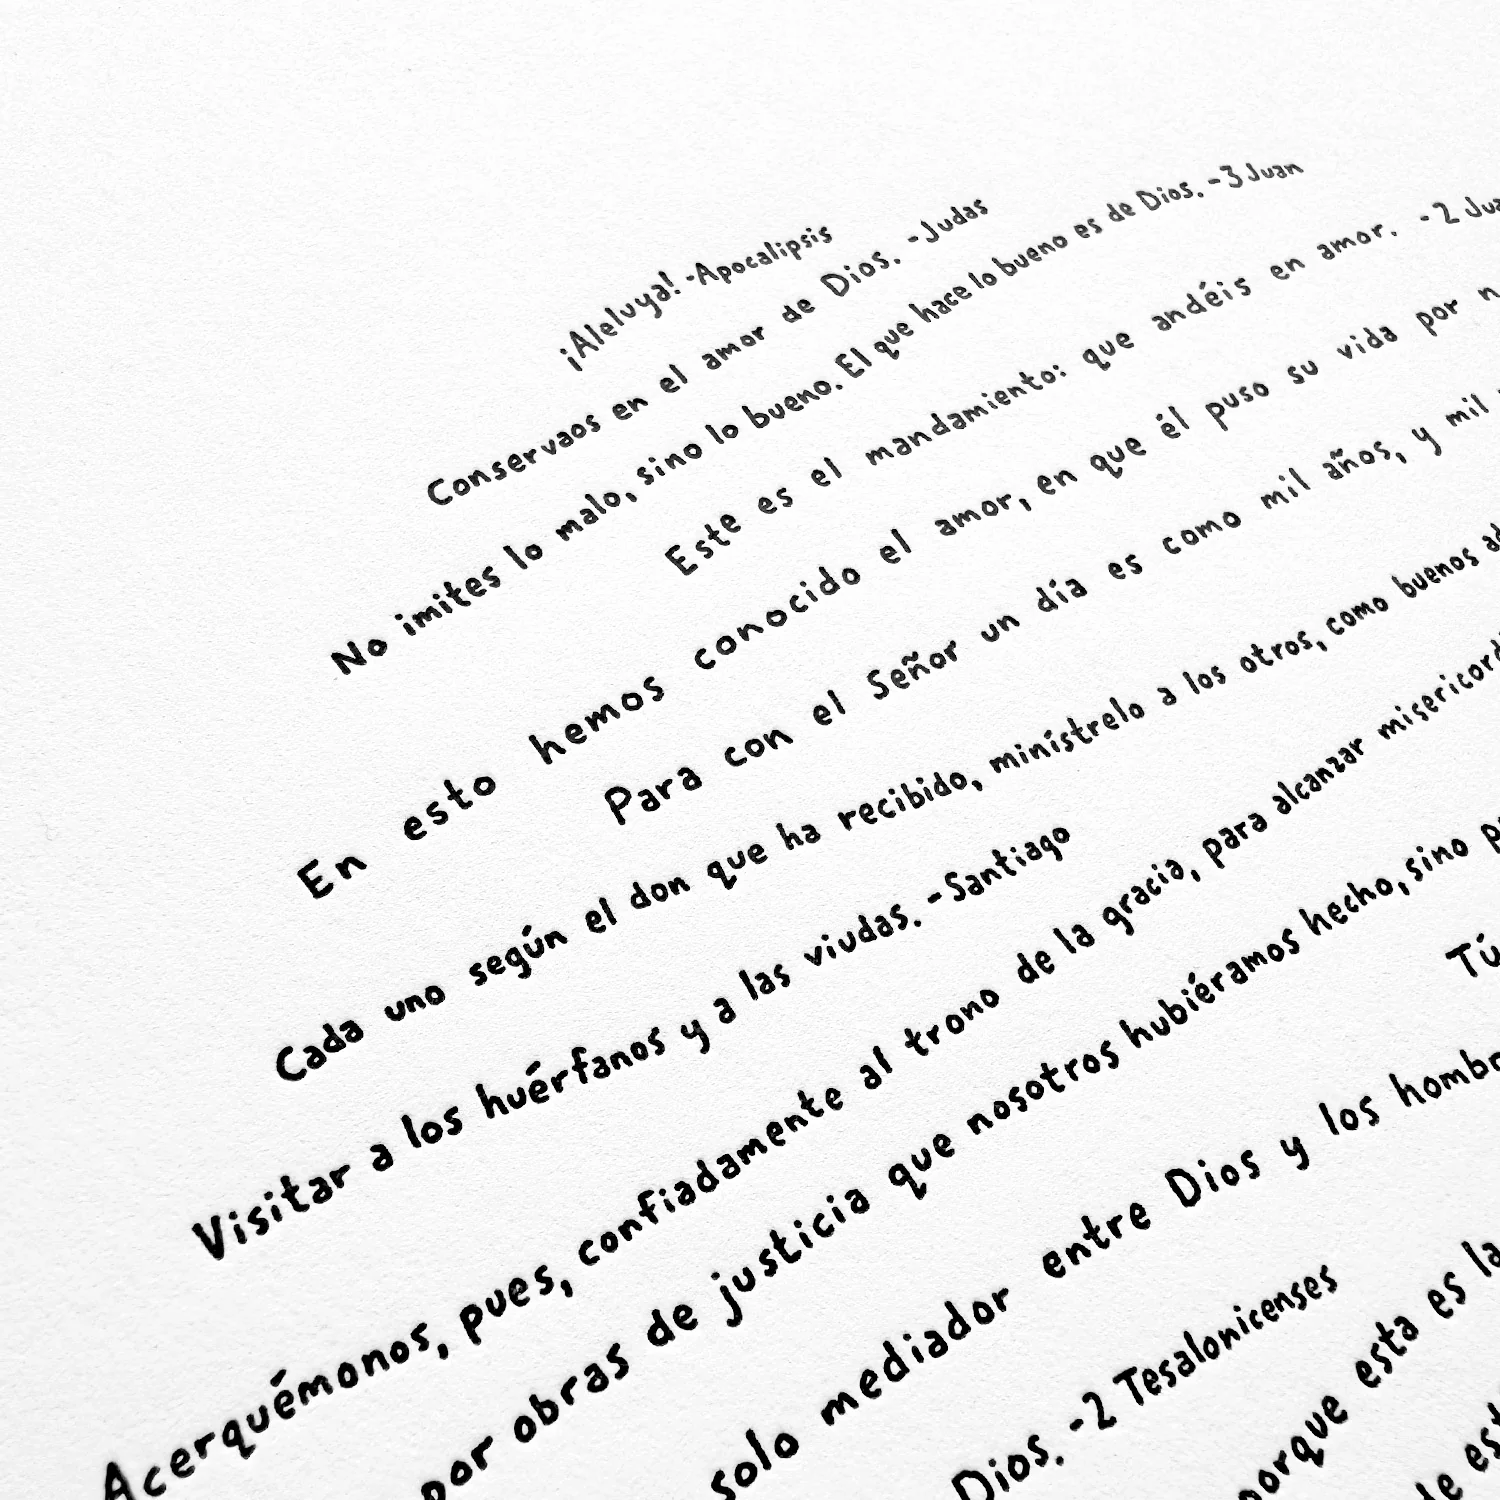 ¡Aleluya! -Apocalipsis
Conservaos en el amor de Dios. -Judas
No imites lo malo, sino lo bueno. El que hace lo bueno es de Dios. -3 Juan
Este es el mandamiento: que andéis en amor. -2
En esto hemos conocido el amor, en que él puso su vida por
Para con el Señor un día es como mil años, y mil
Cada uno según el don que ha recibido, minístrelo a los otros, como buenos
Visitar a los huérfanos y a las viudas. -Santiago
Acerquémonos, pues, confiadamente al trono de la gracia, para alcanzar
por obras de justicia que nosotros hubiéramos hecho, sino
Tú
solo mediador entre Dios y los
Dios. -2 Tesalonicenses
porque esta es la
de